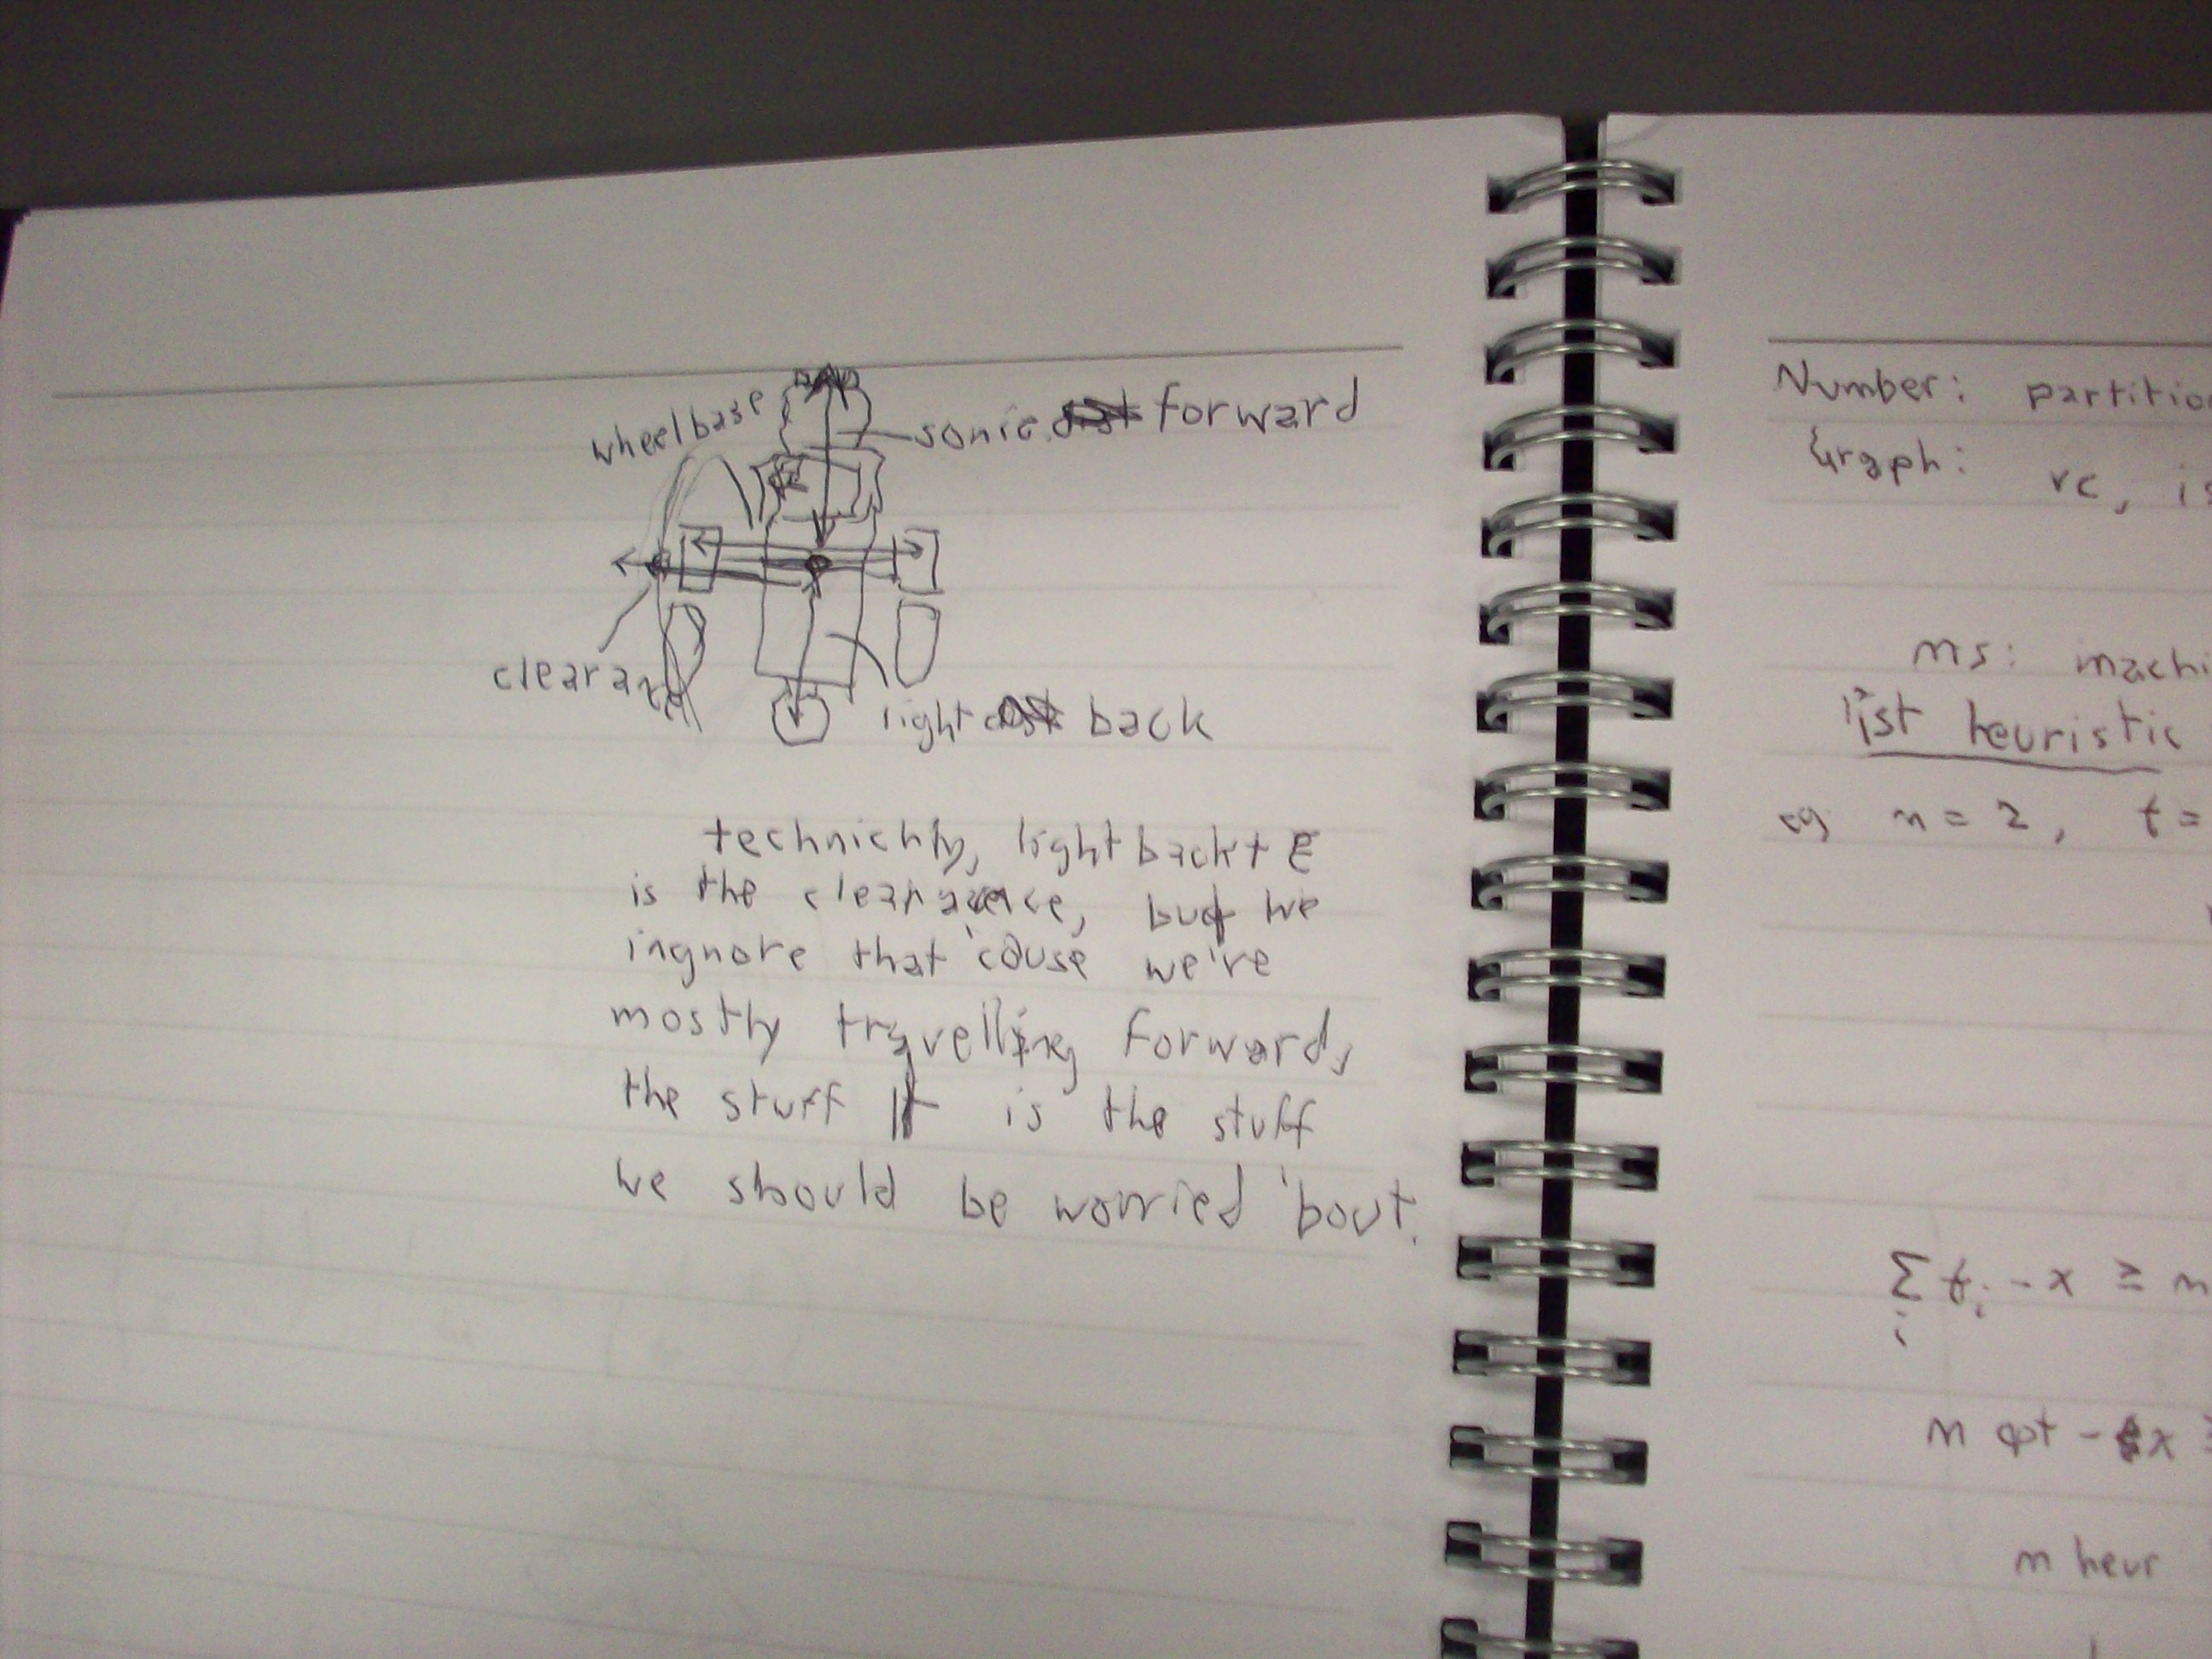 wheelbase
sonic forward
clearance
light back
technichly, light back + ε
is the clearance, but we
ingnore that 'cause we're
mostly travelling forward,
the stuff is the stuff
we should be worried 'bout.
Number: partitio
Graph: vc, is
ms: machi
list heuristic
eg m = 2, t =
∑ t_i - x ≥ m
i
m opt - x ≥
m heur